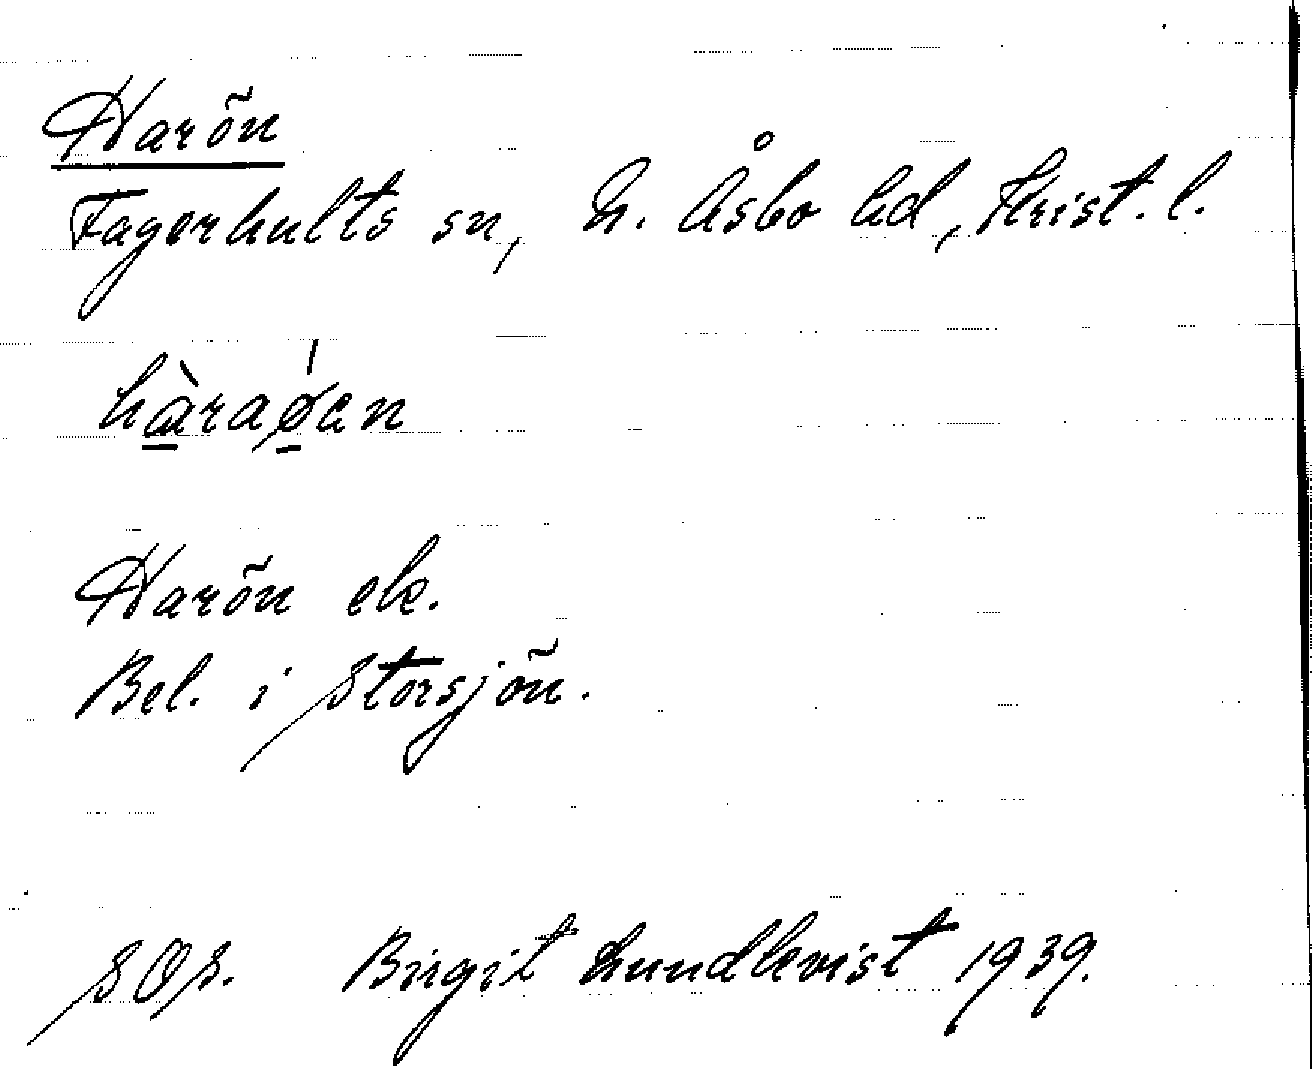 Harön
Fagerhults sn, N. Åsbo hd, Krist. l.
hàraøen
Harön ek.
Bel. i Storsjön.
SOS. Birgit Lundkvist 1939.